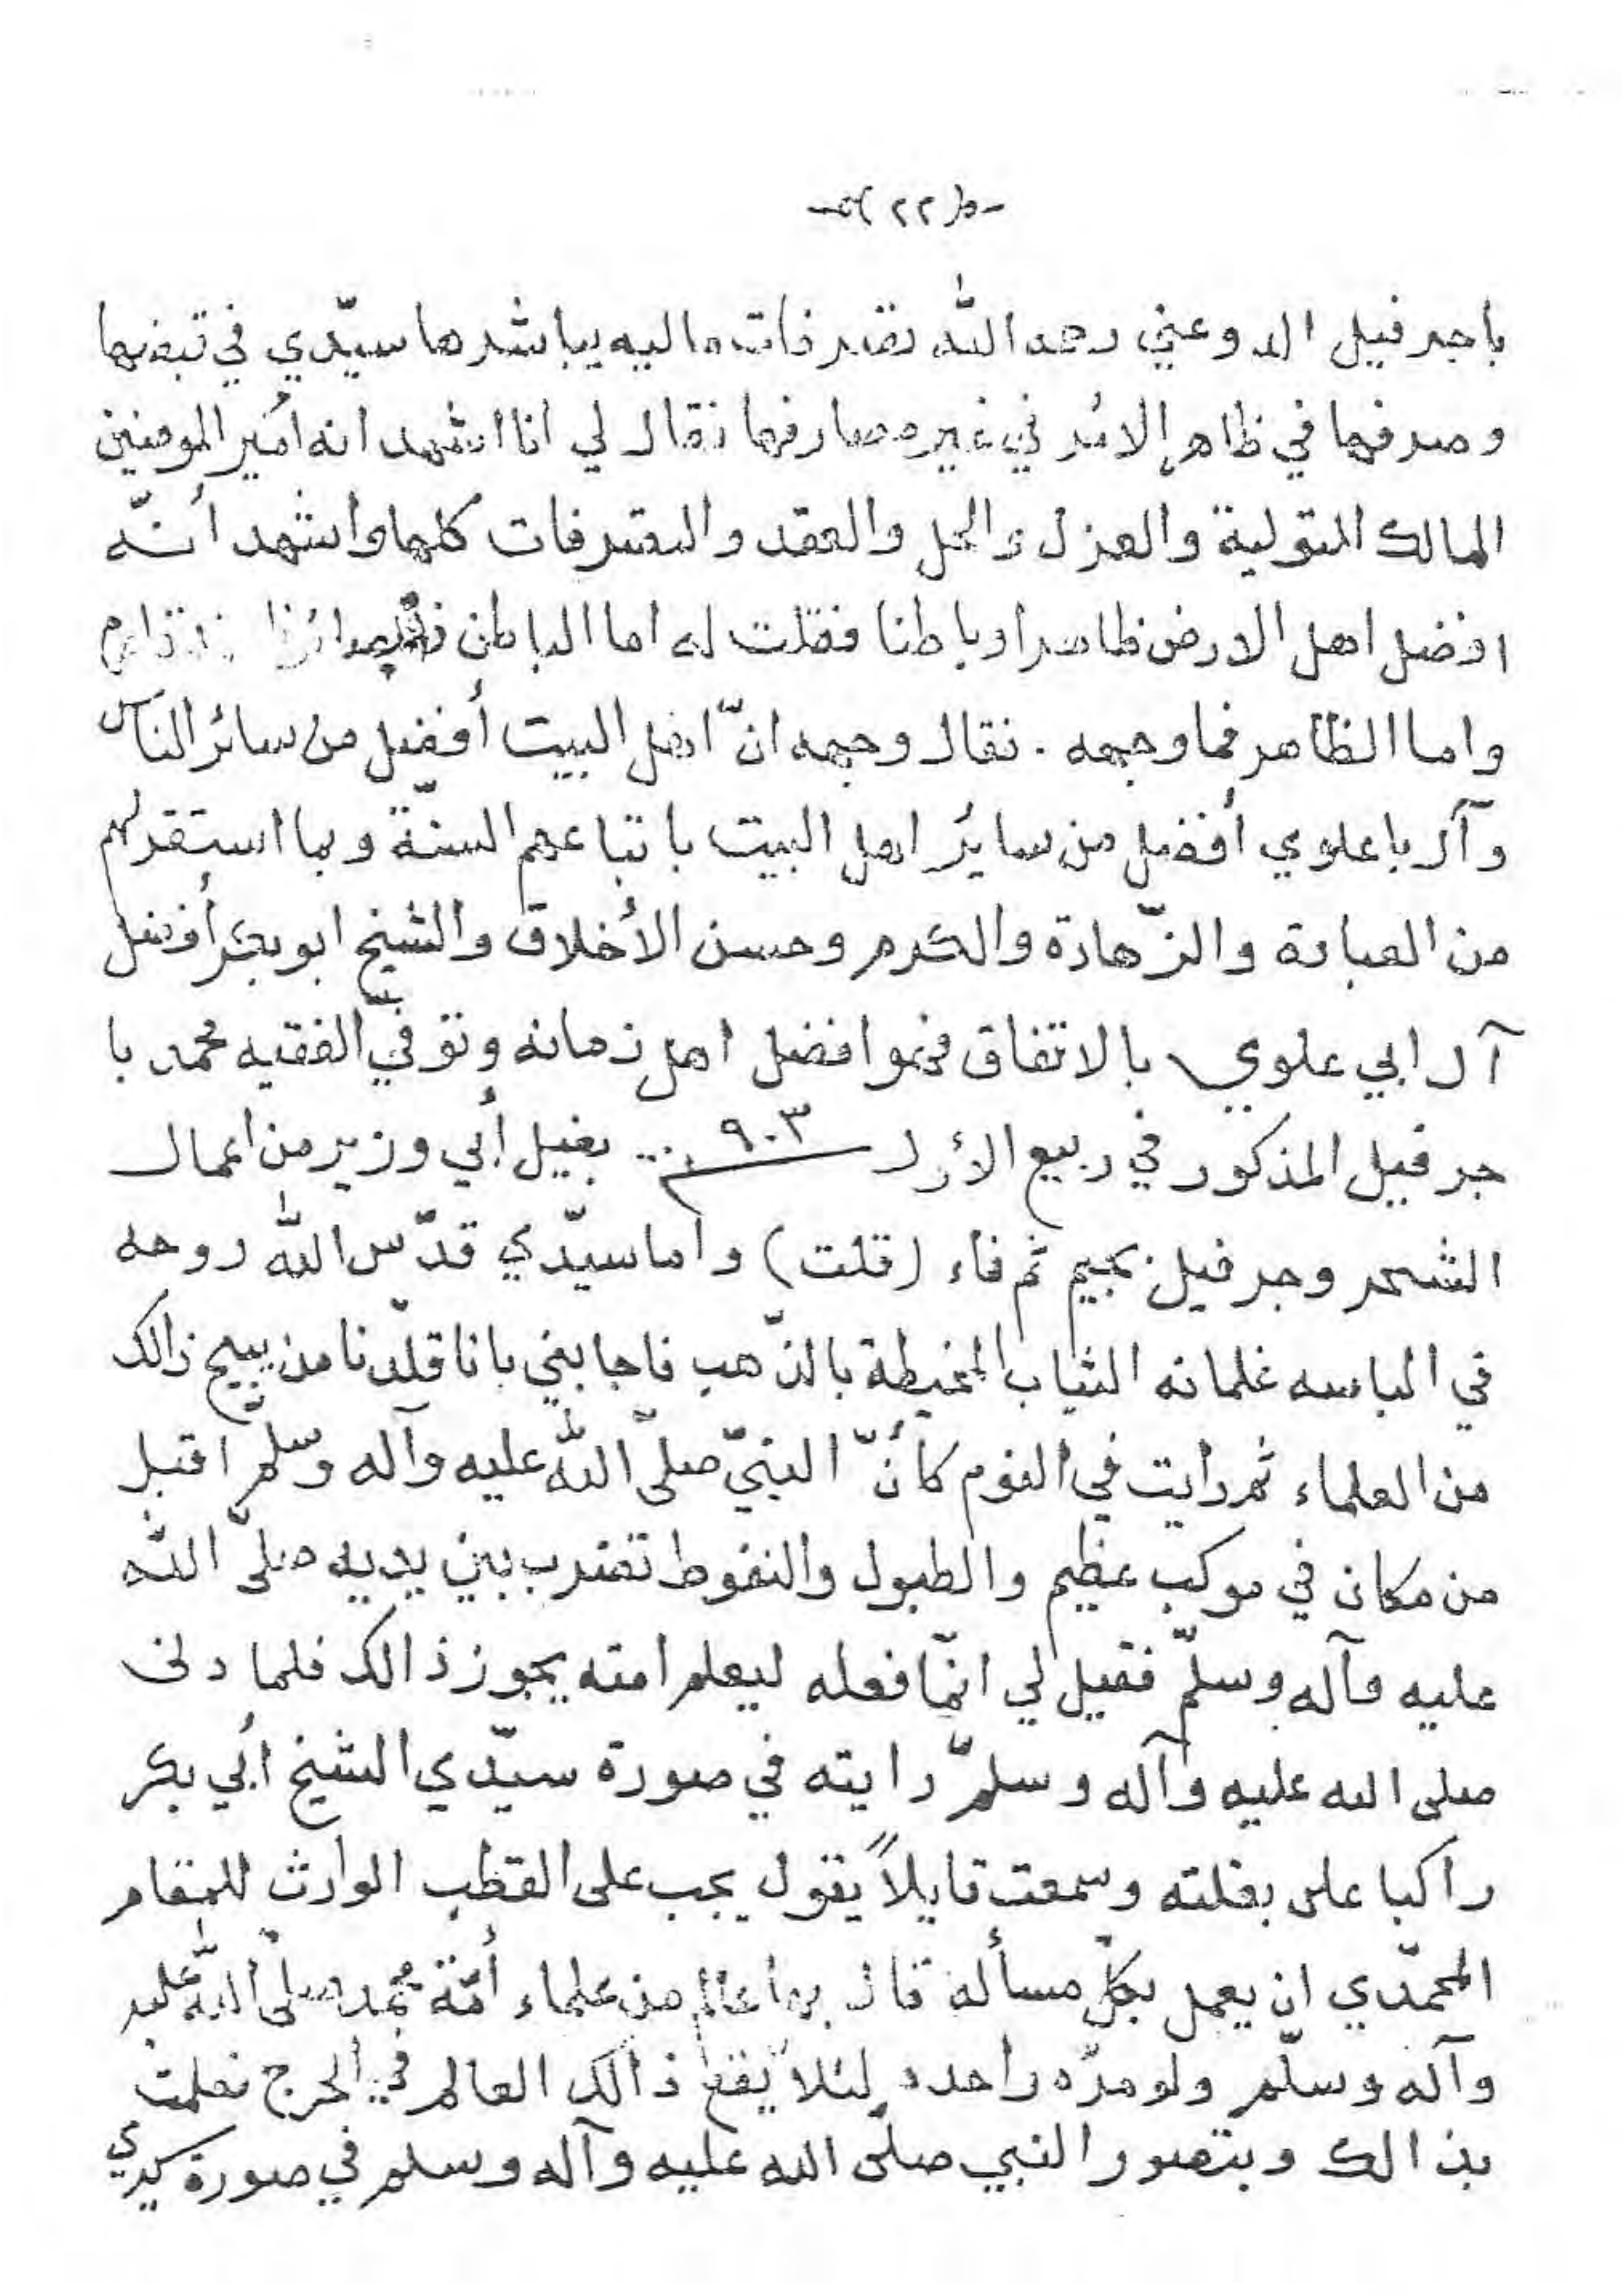 -﴿ ٢٢ ﴾-
باجرفيل الدوعني رحمه الله تصرفات ماليه يباشرها سيّدي في قبضها
وصرفها في ظاهر الأمر في غير مصارفها فقال لي انا اشهد انه أمير المومنين
المالك التولية والعزل والحل والعقد والتصرفات كلها واشهد أنّه
افضل اهل الارض ظاهرا وباطنا فقلت له اما الباطن
واما الظاهر فما وجهه . فقال وجهه انّ اهل البيت أفضل من سائر الناس
وآل باعلوي أفضل من سايُر اهل البيت باتباعهم السنّة وبما استقر لهم
من العبادة والزّهادة والكرم وحسن الأخلاق والشيخ ابو بكر أفضل
آل ابي علوي بالاتفاق فهو افضل اهل زمانه وتوفيّ الفقيه محمد با
جرفيل المذكور في ربيع الأول ٩٠٣ .. بغيل أبي وزير من اعمال
الشحر وجرفيل بجيم ثم فاء (قلت) واما سيّدي قدّس الله روحه
في الباسه غلمانه الثياب المخيطة بالذّهب فاجابني بانا قلّدنا من يبيح ذالك
من العلماء ثم رايت في النوم كأنّ النبيّ صلّى الله عليه وآله وسلّم اقبل
من مكان في موكب عظيم والطبول والنفوط تضرب بين يديه صلّى الله
عليه وآله وسلّم فقيل لي انّما فعله ليعلم امته يجوز ذالك فلما دنى
صلى الله عليه وآله وسلّم رايته في صورة سيّدي الشيخ أبي بكر
راكبا على بغلته وسمعت قايلاً يقول يجب على القطب الوارث للمقام
المحمّدي ان يعمل بكلّ مسألة قال بها عالم من علماء أمّة محمد صلّى اللّه عليه
وآله وسلّم ولو مرّه واحده لئلا يقع ذالك العالم في الحرج فعلمت
بذالك وبتصور النبي صلّى الله عليه وآله وسلم في صورة سيدي